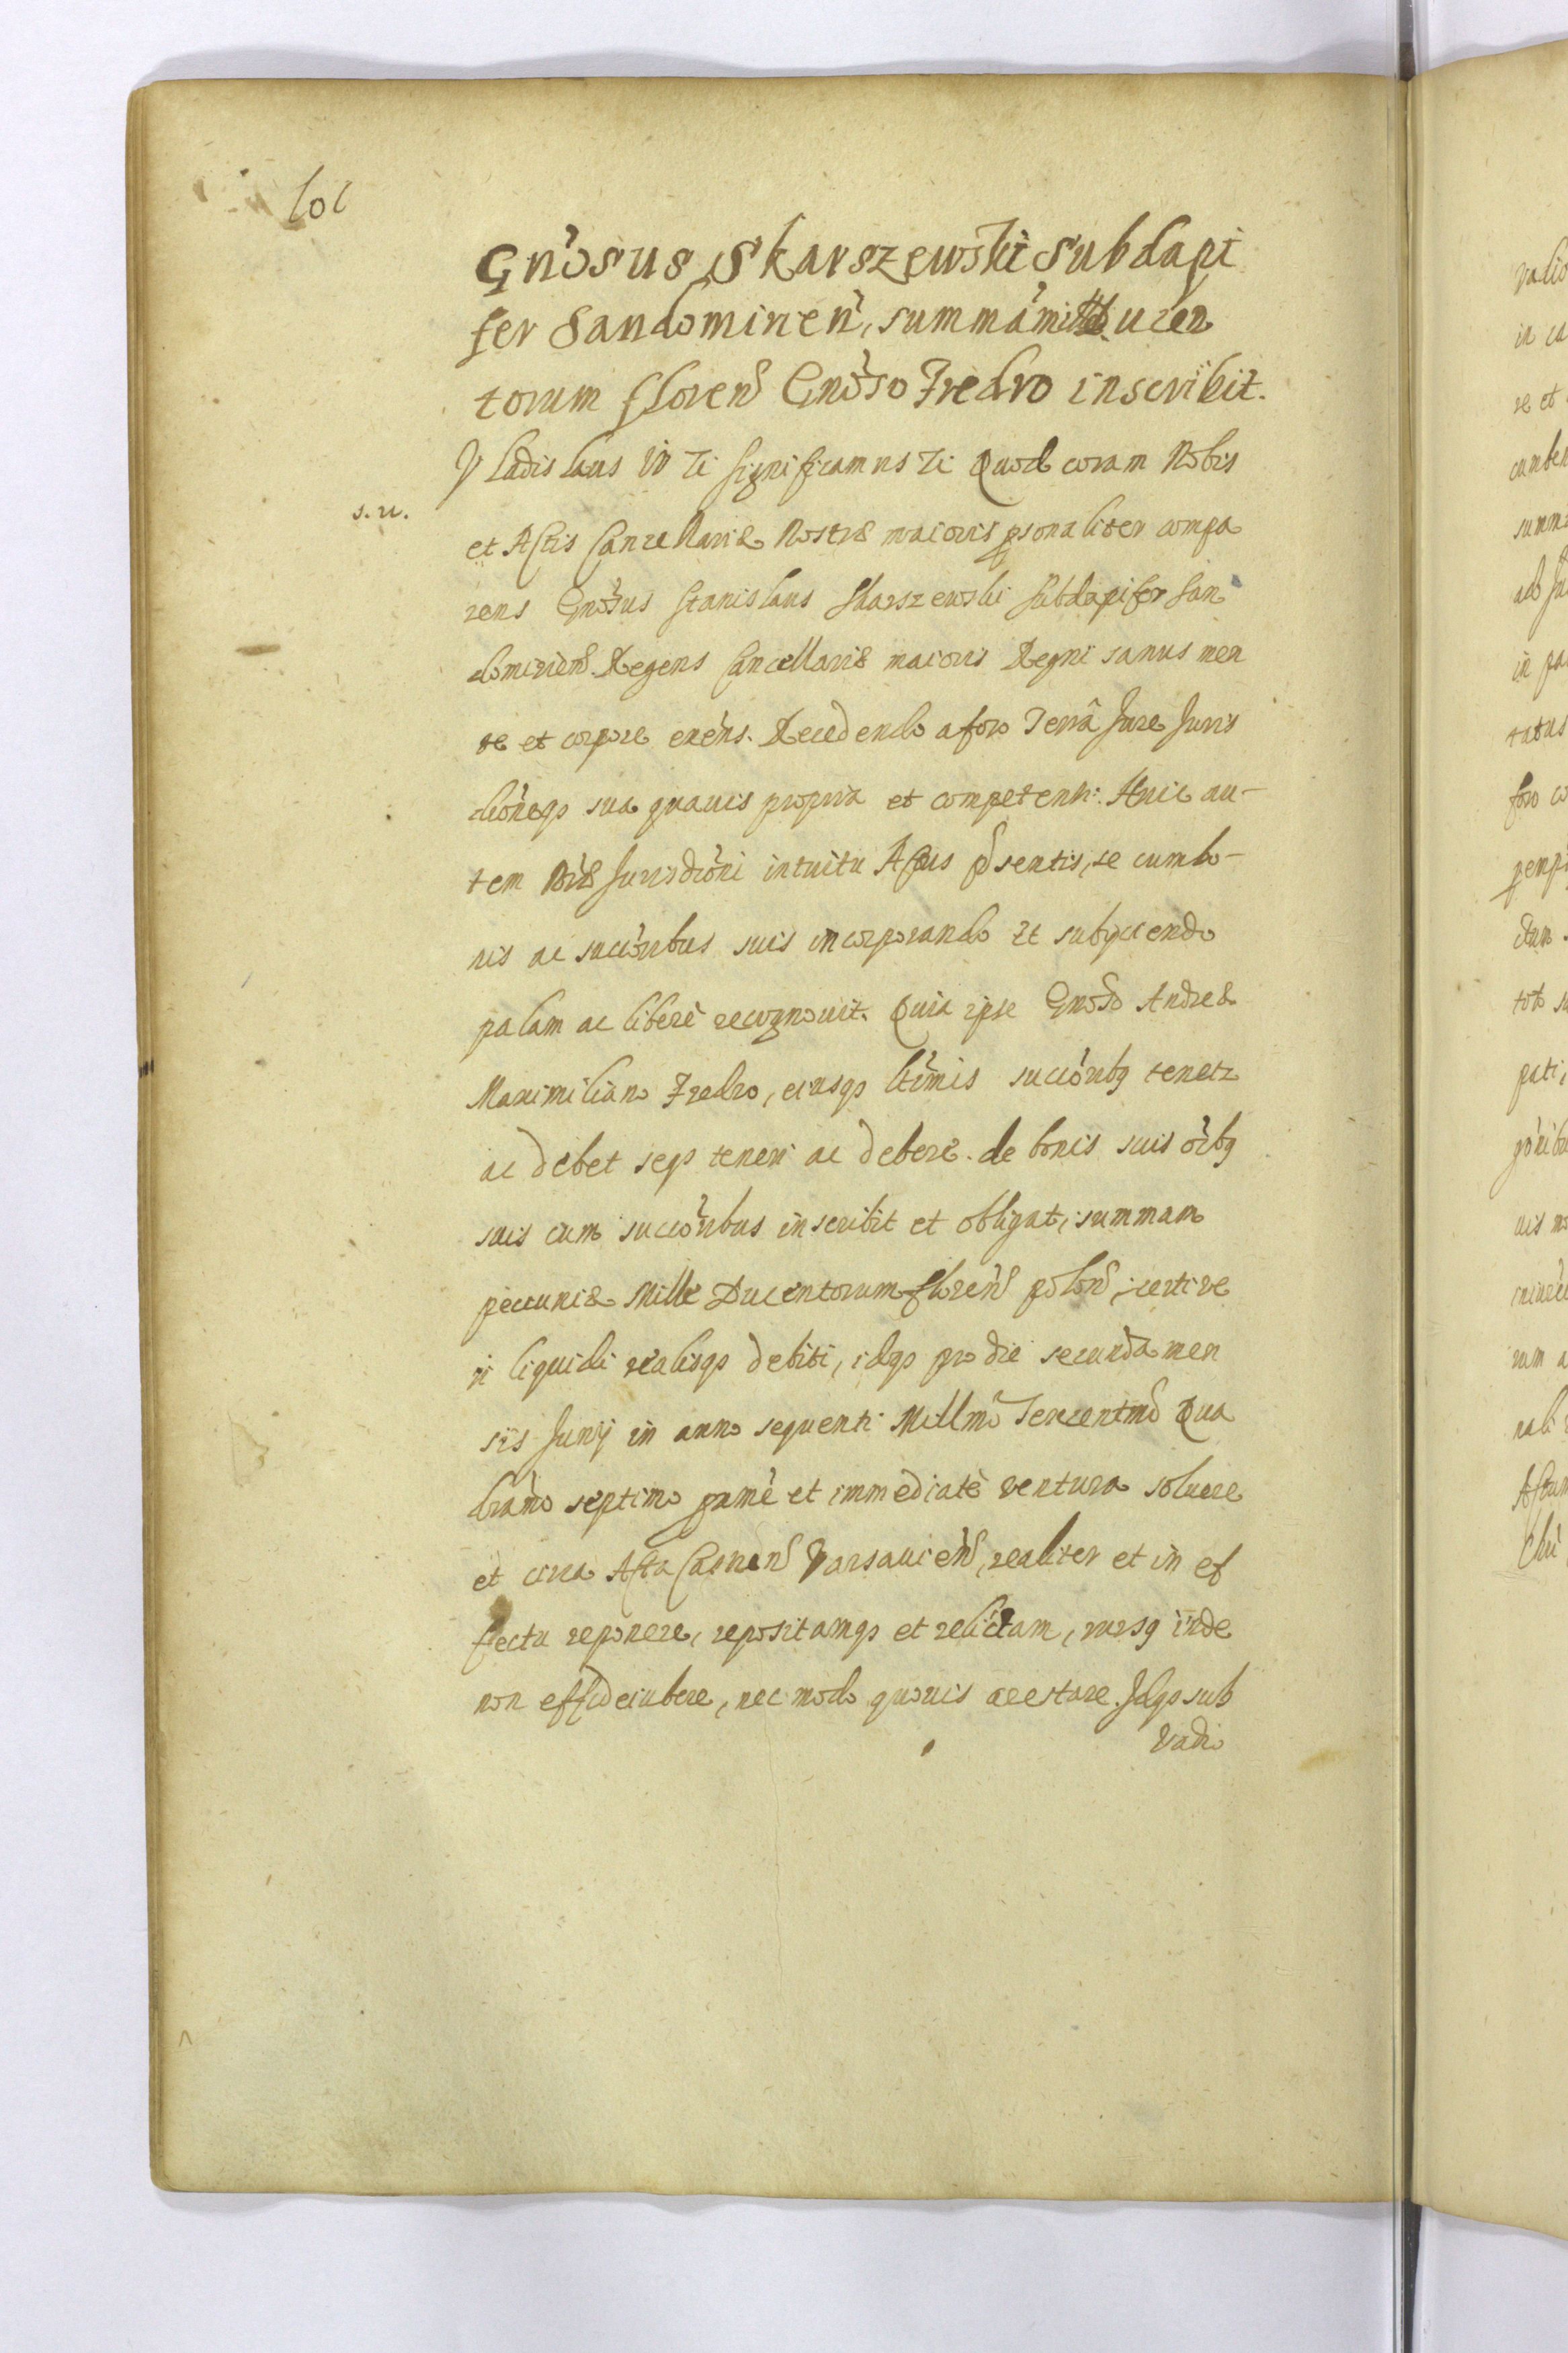 101
Gnosus Skarszewski Subdapi
fer Sandomirien, summā mille ducen
torum floren Gnoso Fredro inscribit.
Vladislaus IV Ti significamus Ti Quod coram Nobis
s. n.
et Actis Cancellariæ Nostræ maioris psonaliter compa
rens Gnosus Stanislaus Skarszewski Subdapifer San
domirien. Regens Cancellariæ maioris Regni sanus men
te et corpore exēns. Recedendo a foro Terrā Jure Juris
dioneqs sua quavis propria et competenti. Huic au-
tem Noræ Jurisdioni intuitu Actus psentis, se cum bo-
nis ac succoribus suis incorporando et subijciendo
palam ac liberè recognovit. Quia ipse Gnoso Andreæ
Maximiliano Fredro, eiusqs ltimis succoribq tenetr
ac debet seqs teneri ac debere de bonis suis oibq
suis cum succoribus inscribit et obligat, summam
pecuniæ Mille Ducentorum floren polon, certi ve
ri liquidi realisqs debiti, idqs pro die secunda men
sis Junij in anno sequenti Millmo Sexcentmo Qua
dramo septimo pxmè et immediatè ventura solvere
et circa Acta Castren Varsavien, realiter et in ef
fectu reponere, repositamqs et relictam, rursq inde
non effideiubere, nec modo quovis arestare. Idqs sub
Vadio